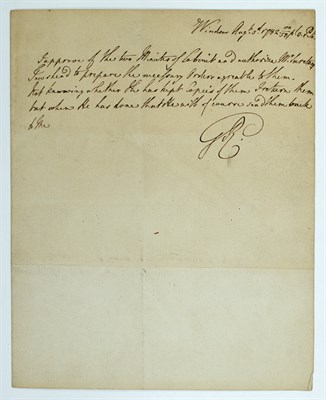 Windsor Augt. 3d. 1782 m pt. 6. P.M.
I approve of the two Minutes of Cabinet and authorize Mr.
Townshend to prepare the necessary Orders agreable to them.
Not knowing whether He has kept Copies of them I return them
but when He has done that He will of course send them back
to Me
GR.